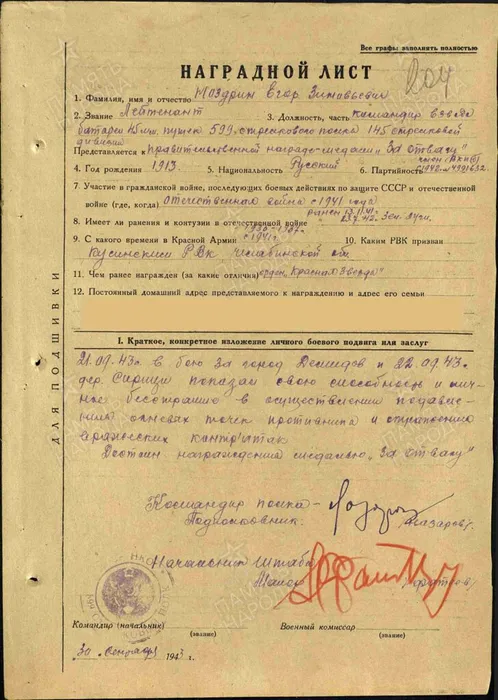 Все графы заполнять полностью
НАГРАДНОЙ ЛИСТ
204
1. Фамилия, имя и отчество Моздрин Егор Зиновьевич
2. Звание Лейтенант 3. Должность, часть командир взвода
батареи 45 мм пушек 599 стрелкового полка 145 стрелковой
дивизии
Представляется к правительственной награде-медали "За отвагу"
член ВКП(б)
4. Год рождения 1913 5. Национальность Русский 6. Партийность
7. Участие в гражданской войне, последующих боевых действиях по защите СССР и отечественной
войне (где, когда) отечественная война с 1941 года
8. Имеет ли ранения и контузии в отечественной войне ранен
9. С какого времени в Красной Армии с 1941 г. 10. Каким РВК призван
Кусинским РВК Челябинской обл
11. Чем ранее награжден (за какие отличия) орден "Красная Звезда"
12. Постоянный домашний адрес представляемого к награждению и адрес его семьи
ДЛЯ ПОДШИВКИ
I. Краткое, конкретное изложение личного боевого подвига или заслуг
21.09.43г. в бою за город Демидов и 22.09.43г.
дер. Сирици показал свою способность и лич-
ное бесстрашие в осуществлении подавле-
ния огневых точек противника и отражению
вражеских контратак
Достоин награждения медалью "За отвагу"
Командир полка-
Подполковник. /Лазарев/.
Начальник штаба
Майор
Командир (начальник) Военный комиссар
(звание) (звание)
"30" сентября 1943 г.